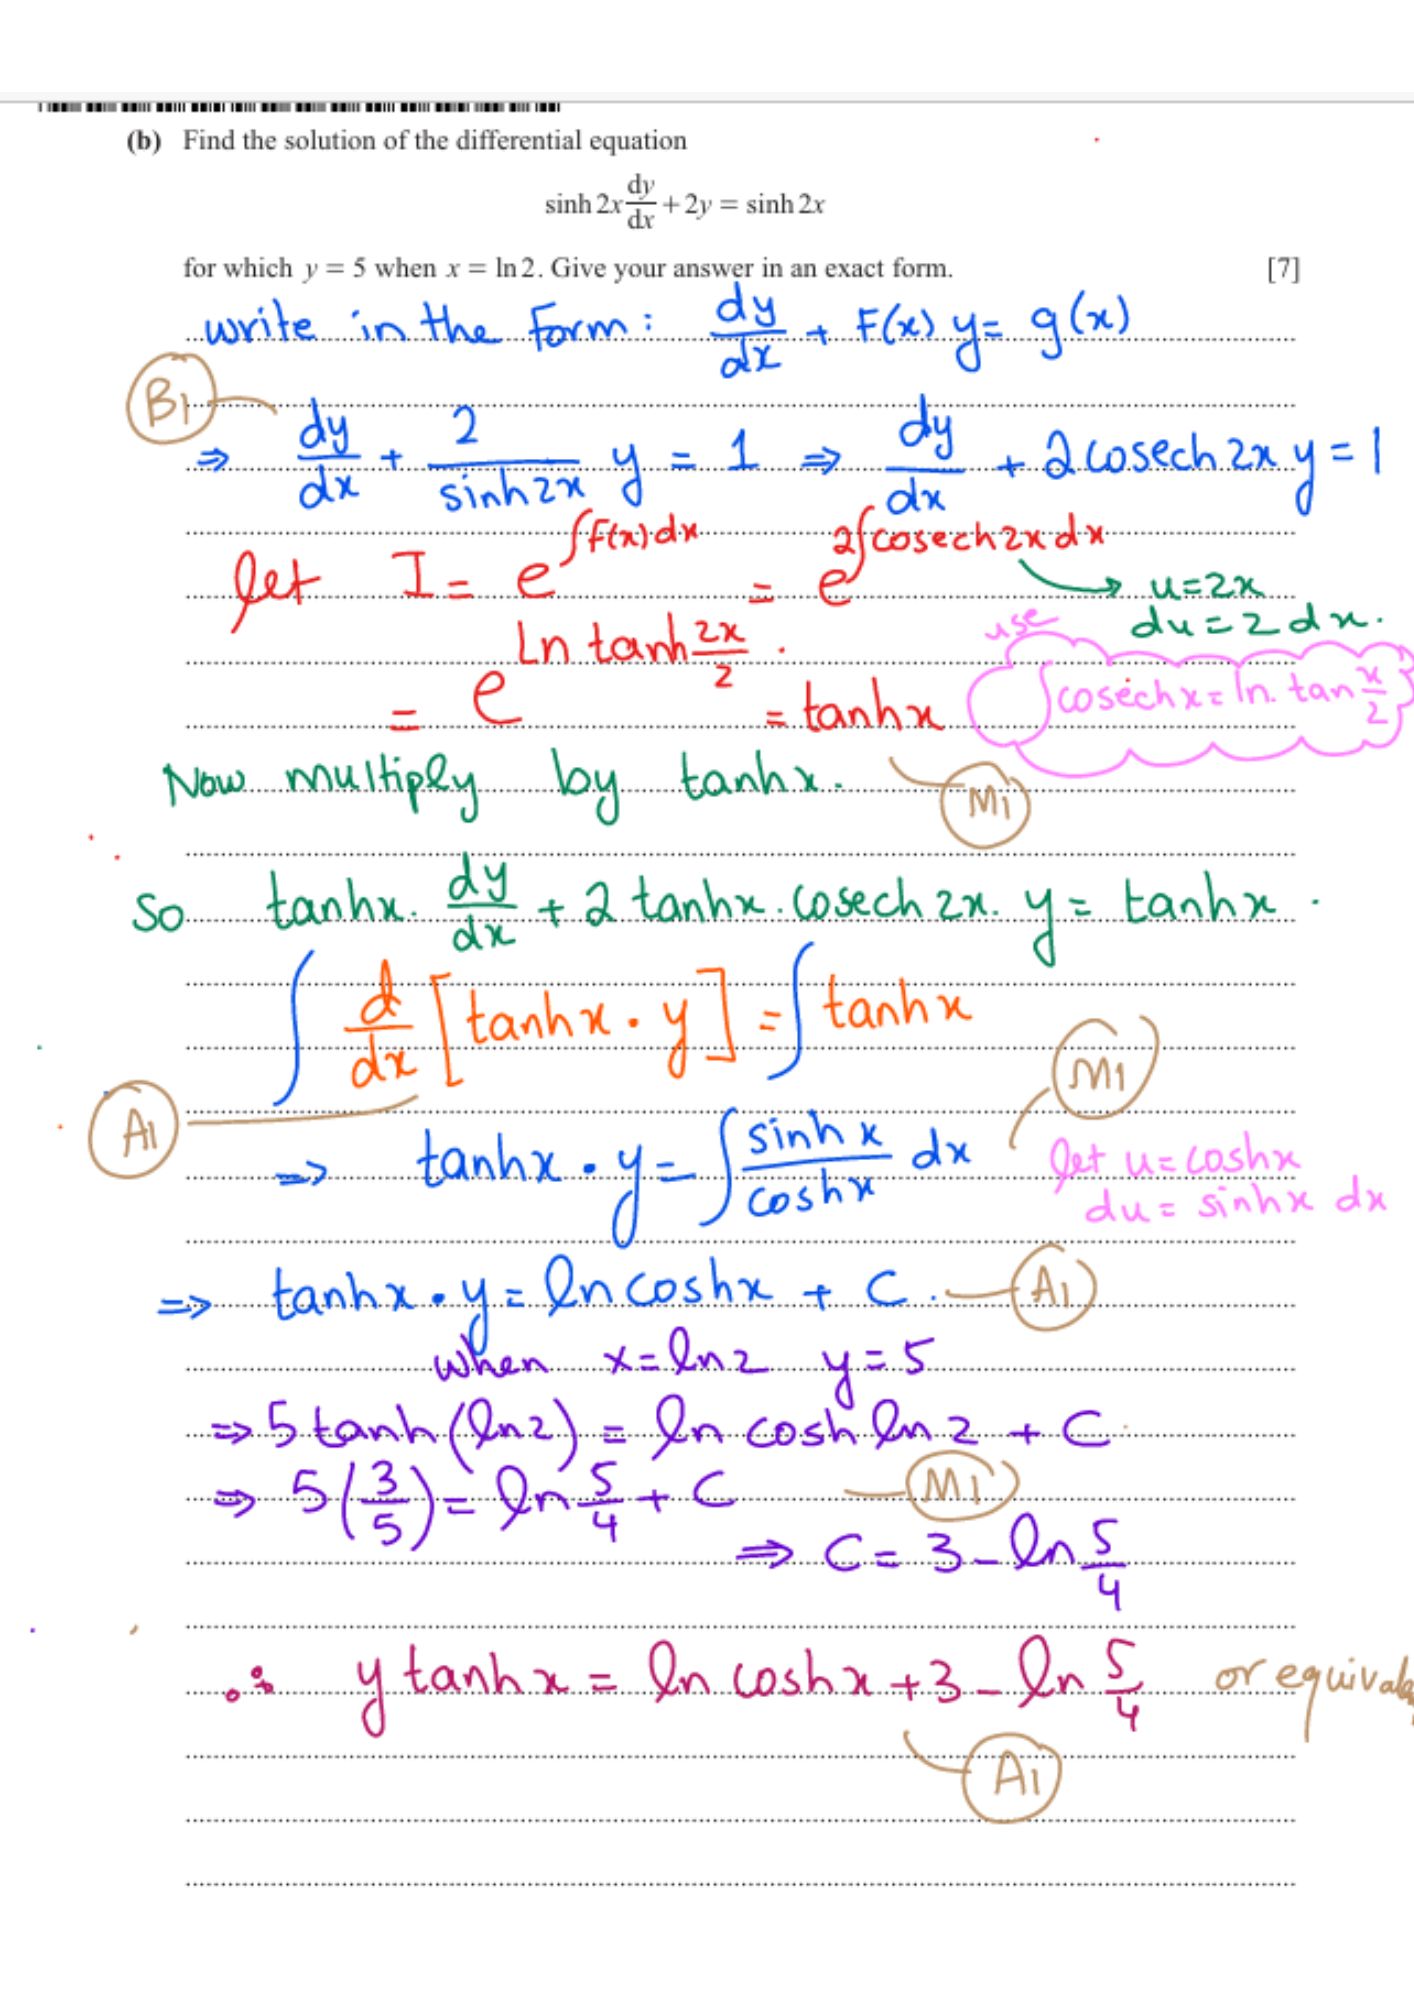 (b) Find the solution of the differential equation
sinh 2x dy/dx + 2y = sinh 2x
for which y = 5 when x = ln 2. Give your answer in an exact form. [7]
write in the form: dy/dx + F(x) y = g(x)
B1
⇒ dy/dx + 2/sinh2x y = 1 ⇒ dy/dx + 2 cosech 2x y = 1
let I = e^∫F(x)dx = e^2∫cosech 2x dx → u=2x
du = 2 dx.
use
= e^ln tanh 2x/2 . = tanhx
∫cosechx = ln. tan x/2
Now multiply by tanhx.
M1
So tanhx. dy/dx + 2 tanhx . cosech 2x. y = tanhx .
∫ d/dx [tanhx . y] = ∫ tanhx
M1
A1
⇒ tanhx . y = ∫ sinh x/coshx dx
let u = coshx
du = sinhx dx
⇒ tanhx . y = ln coshx + C . A1
when x = ln2 y = 5
⇒ 5 tanh (ln2) = ln cosh ln 2 + C
⇒ 5(3/5) = ln 5/4 + C M1
⇒ C = 3 - ln 5/4
∴ y tanhx = ln coshx + 3 - ln 5/4
A1